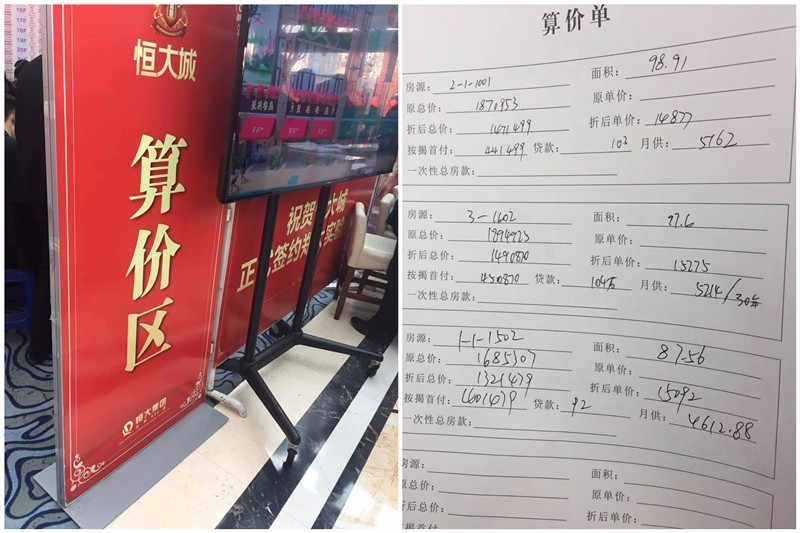 恒大城
算价区
恒大集团
祝贺 大城
正 签约郑 大实验
算价单
房源： 2-1-1001 面积： 98.91
原总价： 1870953 原单价：
折后总价： 1471499 折后单价： 14877
按揭首付： 441499 贷款： 103 月供： 5162
一次性总房款：
房源： 3-1602 面积： 97.6
原总价： 原单价：
折后总价： 1490870 折后单价： 15275
按揭首付： 450870 贷款： 104万 月供： 5214/30年
一次性总房款：
房源： 1-1-1502 面积： 87.56
原总价： 1685307 原单价：
折后总价： 1321479 折后单价： 15092
按揭首付： 401479 贷款： 92 月供： 4612.88
一次性总房款：
房源： 面积：
原总价： 原单价：
折后总价： 折后单价：
按揭首付